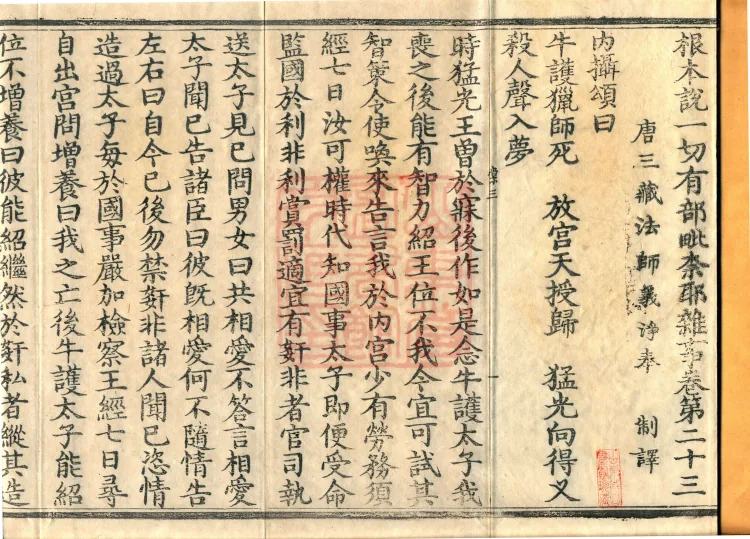 根本說一切有部毗柰耶雜事卷第二十三
唐三藏法師義淨奉 制譯
內攝頌曰
牛護獵師死 放宮天授歸 猛光向得叉
殺人聲入夢
時猛光王曾於寐後作如是念牛護太子我
喪之後能有智力紹王位不我今宜可試其
智策令使喚來告言我於內宮少有勞務須
經七日汝可權時代知國事太子即便受命
監國於利非利賞罰適宜有姧非者官司執
送太子見已問男女曰共相愛不答言相愛
太子聞已告諸臣曰彼旣相愛何不隨情告
左右曰自今已後勿禁姧非諸人聞已恣情
造過太子每於國事嚴加檢察王經七日尋
自出宮問增養曰我之亡後牛護太子能紹
位不增養曰彼能紹繼然於姧私者縱其造